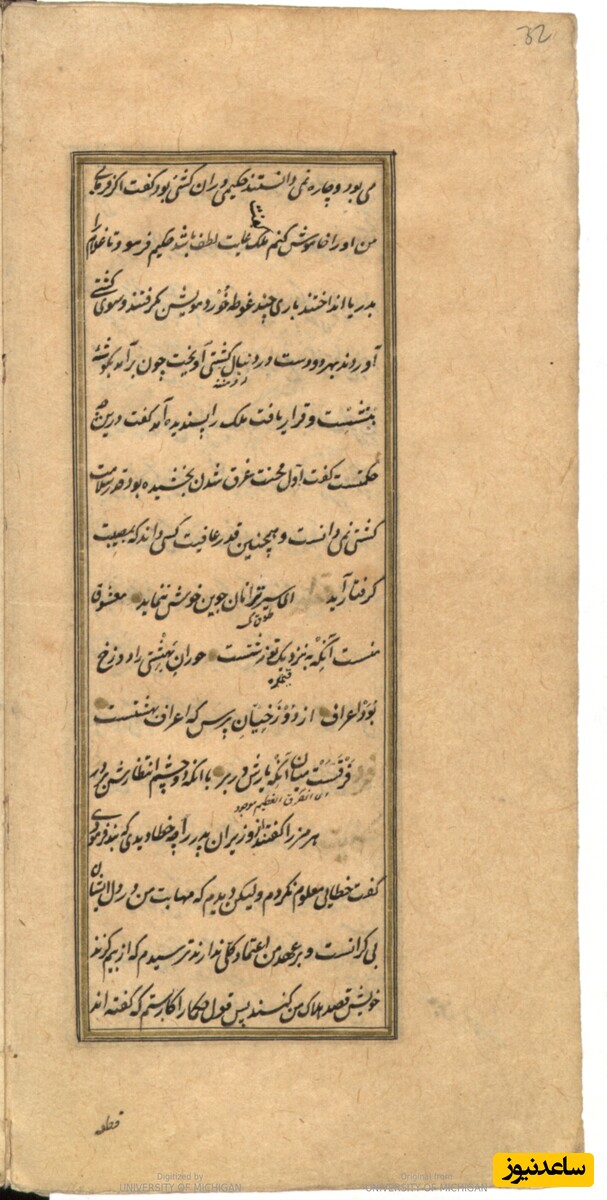 32
می بود و چاره نمی دانستند حکیمی دران کشتی بود گفت اگر فرمایی
من او را خاموش کنم ملک گفت غایت لطف باشد حکیم فرمود تا غلام را
بدریا انداختند باری چند غوطه خورد مویش گرفتند و سوی کشتی
آوردند بهر دو دست در دنبال کشتی آویخت چون برآمد بگوشه
بنشست و قرار یافت ملک را پسندیده آمد گفت درین چه
حکمتست گفت اول محنت غرق شدن نچشیده بود قدر سلامت
کشتی نمی دانست و همچنین قدر عافیت کسی داند که بمصیبت
گرفتار آید ای سیر ترا نان جوین خوش ننماید معشوق
منست آنکه به نزدیک تو زشتست حوران بهشتی را دوزخ
بود اعراف از دوزخیان پرس که اعراف بهشتست
فرقست میان آنکه یارش در بر با آنکه دو چشم انتظارش بر در
هرمز را گفتند از وزیران پدر را چه خطا دیدی که بند فرمودی
گفت خطایی معلوم نکردم ولیکن دیدم که مهابت من در دل ایشان
بی کرانست و بر عهد من اعتماد کلی ندارند ترسیدم که از بیم گزند
خویش قصد هلاک من کنند پس قول حکما را کار بستم که گفته اند
قطعه
Digitized by
UNIVERSITY OF MICHIGAN
Original from
UNIVERSITY OF MICHIGAN
ساعدنیوز